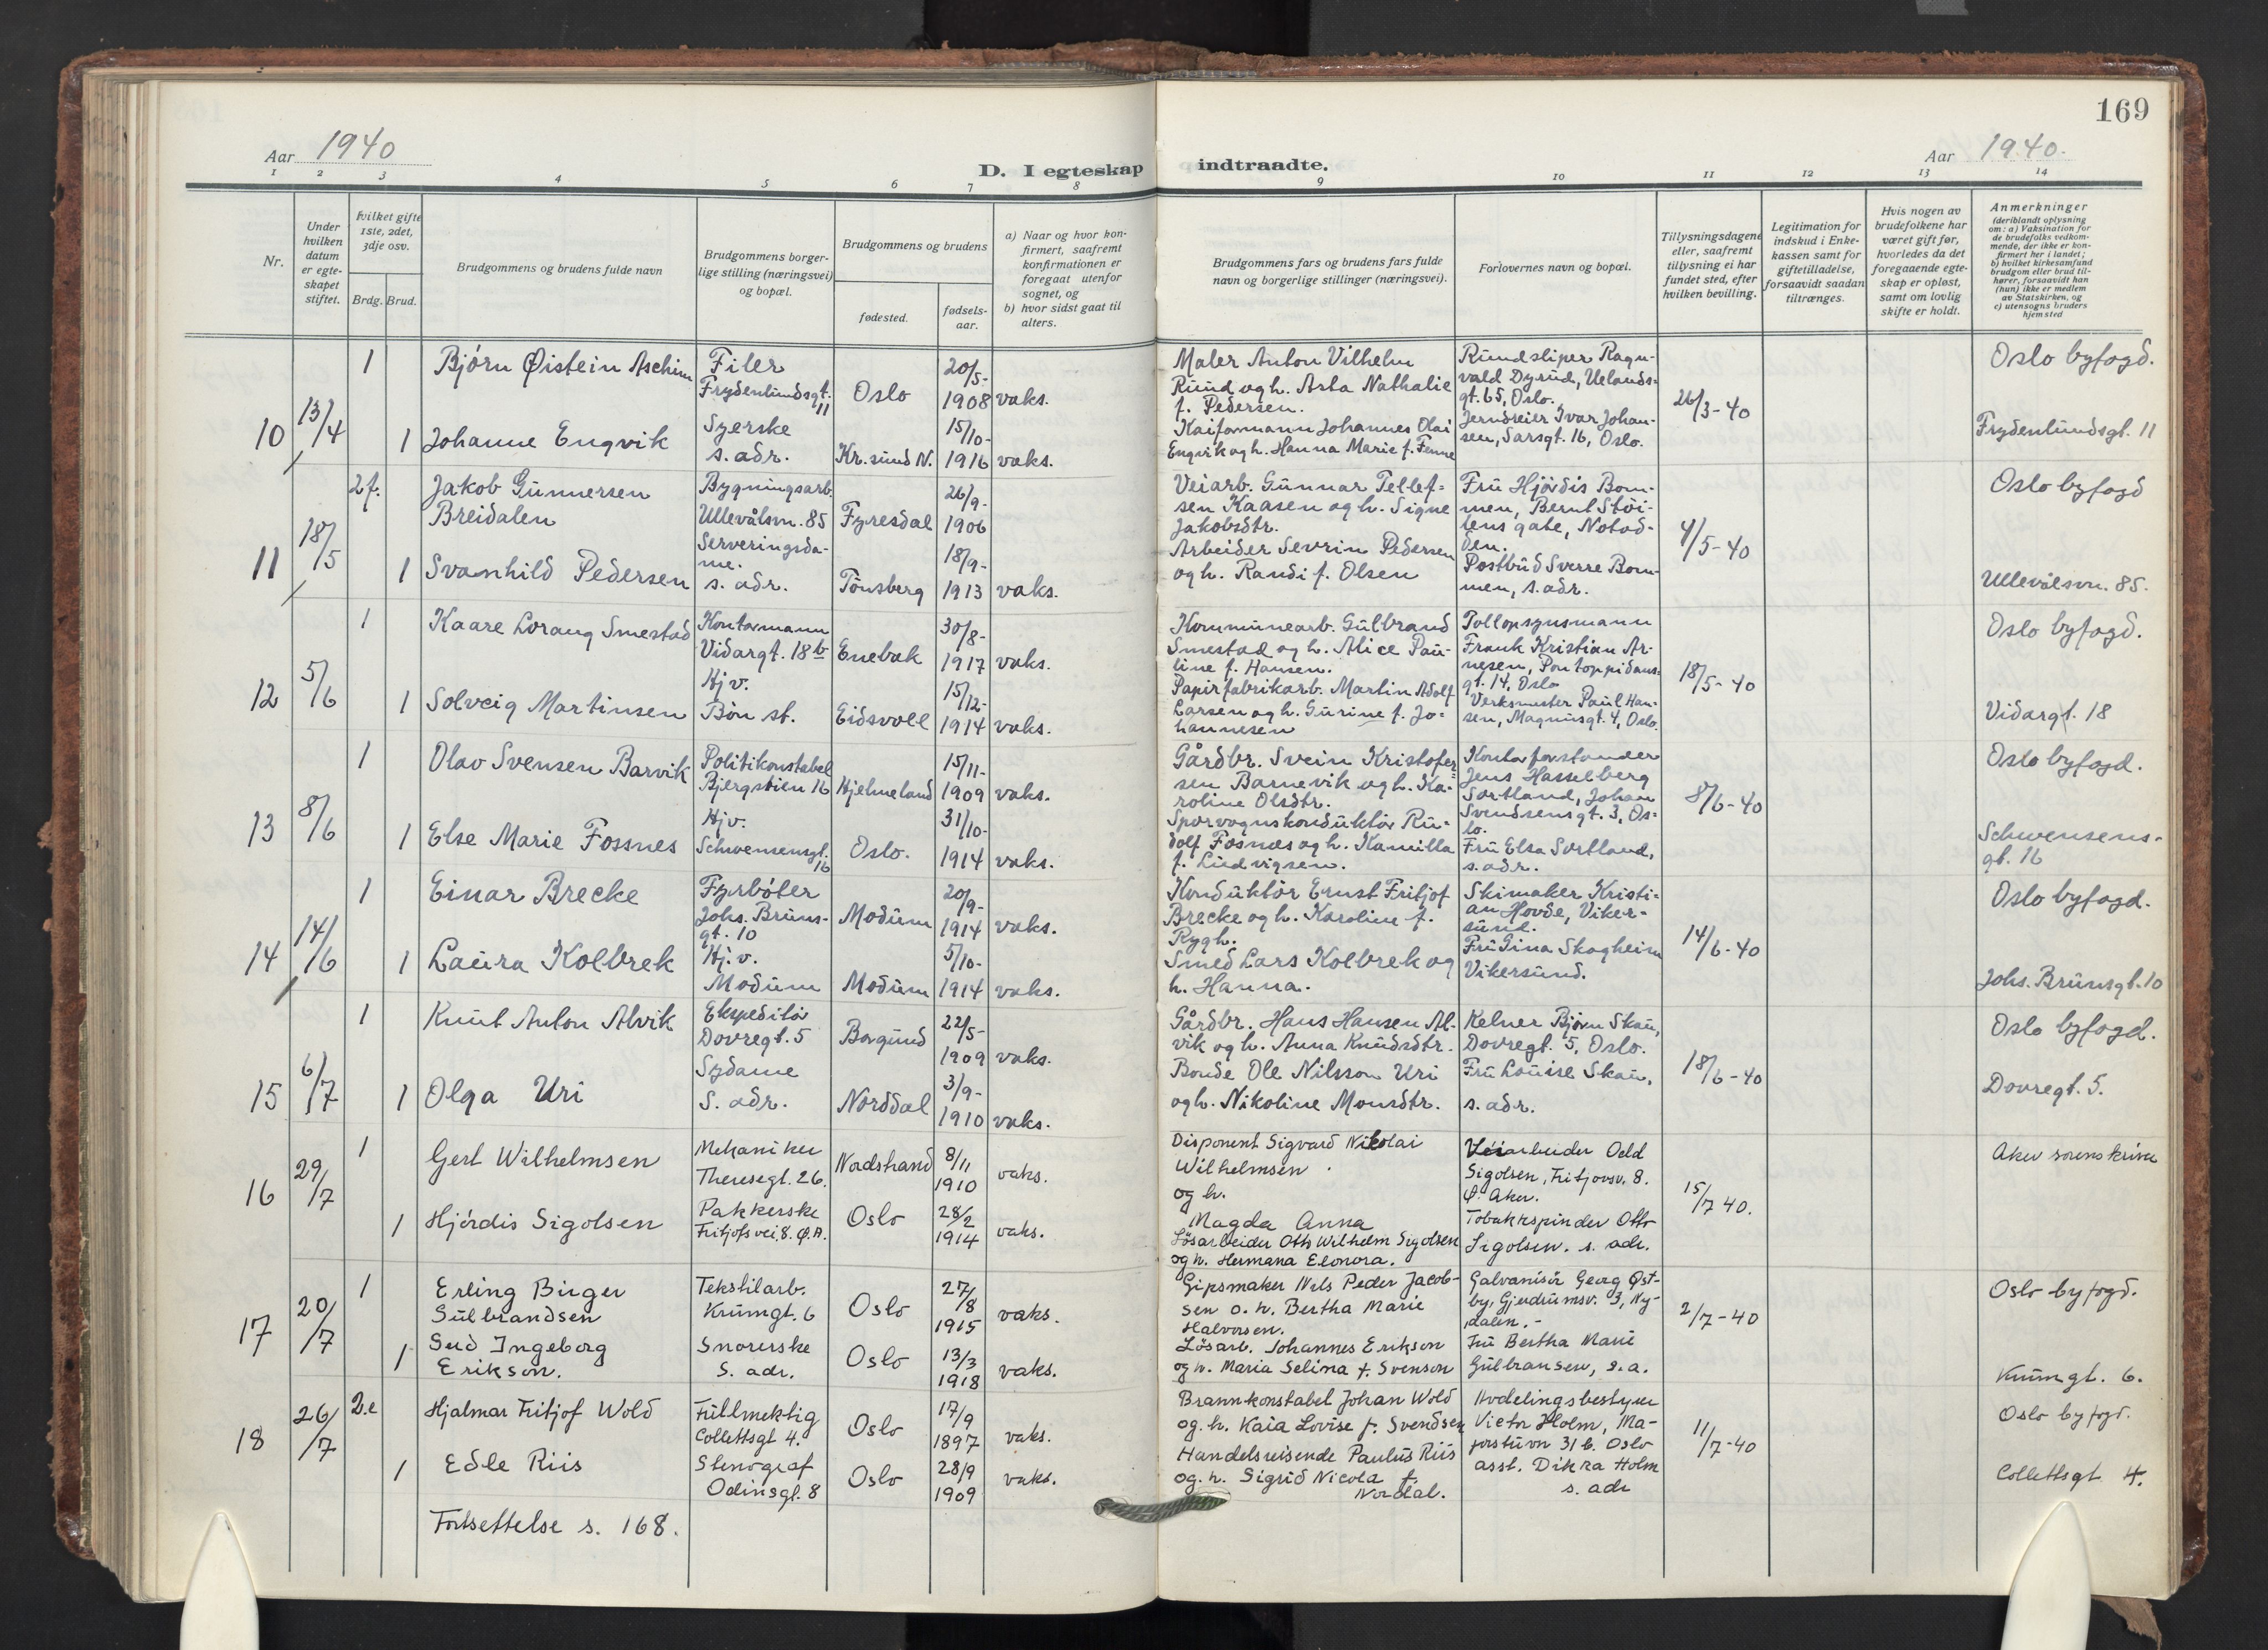 169
Aar 1940
D. I egteskap indtraadte.
Aar 1940.
1 2 3 4 5 6 7 8 9 10 11 12 13 14
Nr.
Under hvilken datum er egteskapet stiftet.
hvilket gifte 1ste, 2det, 3dje osv.
Brdg. Brud.
Brudgommens og brudens fulde navn
Brudgommens borgerlige stilling (næringsvei) og bopæl.
Brudgommens og brudens
fødested.
fødselsaar.
a) Naar og hvor konfirmert, saafremt konfirmationen er foregaat utenfor sognet, og
b) hvor sidst gaat til alters.
Brudgommens fars og brudens fars fulde navn og borgerlige stillinger (næringsvei).
Forlovernes navn og bopæl.
Tillysningsdagene eller, saafremt tillysning ei har fundet sted, efter hvilken bevilling.
Legitimation for indskud i Enkekassen samt for giftetilladelse, forsaavidt saadan tiltrænges.
Hvis nogen av brudefolkene har været gift før, hvorledes da det foregaaende egteskap er opløst, samt om lovlig skifte er holdt.
Anmerkninger (deriblandt oplysning om: a) Vaksination for de brudefolks vedkommende, der ikke er konfirmert her i landet; b) hvilket kirkesamfund brudgom eller brud tilhører, forsaavidt han (hun) ikke er medlem av Statskirken, og c) utensogns bruders hjemsted
10 13/4
1 Bjørn Øistein Aschim
Filer
Frydenlundsgt. 11
Oslo
20/5-1908 vaks.
Maler Anton Vilhelm
Ruud og h. Asta Nathalie
f. Pedersen.
Rundsliper Ragn-
vald Dyrud, Uelands-
gt. 65, Oslo.
26/3-40
Oslo byfogd.
1 Johanne Engvik
Syerske
s. adr.
Kr.sund N.
15/10-1916 vaks.
Kaiformann Johannes Olai
Engvik og h. Hanna Marie f. Fenne
Jerndreier Ivar Johan-
sen, Sarsgt. 16, Oslo.
Frydenlundsgt. 11
11 18/5
2f. Jakob Gunnersen
Breidalen
Bygningsarb.
Ullevålsvn. 85
Fyresdal
26/9-1906
Veiarb. Gunnar Tellef-
sen Kaasen og h. Signe
Jakobsdtr.
Fru Hjørdis Bom-
men, Bernt Støi-
lens gate, Notod-
den.
4/5-40
Oslo byfogd
1 Svanhild Pedersen
Serveringsda-
me.
s. adr.
Tönsberg
18/9-1913 vaks.
Arbeider Sevrin Pedersen
og h. Randi f. Olsen
Postbud Sverre Bom-
men, s. adr.
Ullevålsvn. 85.
12 5/6
1 Kaare Lorang Smestad
Kontormann
Vidargt. 18 b
Enebak
30/8-1917 vaks.
Kommunearb. Gulbrand
Smestad og h. Alice Pau-
line f. Hansen.
Tollopsynsmann
Frank Kristian Ar-
nesen, Pontoppidans-
gt. 14, Oslo
18/5-40
Oslo byfogd.
1 Solveig Martinsen
Hj v.
Bön st.
Eidsvoll
15/12-1914 vaks.
Papirfabrikarb. Martin Adolf
Larsen og h. Gurine f. Jo-
hannesen
Verksmester Paul Han-
sen, Magnusgt. 4, Oslo.
Vidargt. 18
13 8/6
1 Olav Svensen Barvik
Politikonstabel
Bjergstien 16
Hjelmeland
15/11-1909 vaks.
Gårdbr. Svein Kristofer-
sen Barnevik og h. Ka-
roline Olsdtr.
Kontorforstander
Jens Hasselberg
Sortland, Johan
Svendsensgt. 3, Os-
lo.
8/6-40
Oslo byfogd.
1 Else Marie Fossnes
Hjv.
Schwensensgt. 16
Oslo.
31/10-1914 vaks.
Sporvognskonduktör Ru-
dolf Fosnæs og h. Kamilla
f. Ludvigsen.
Fru Elsa Sortland,
s. adr.
Schwensens-
gt. 16
14 14/6
1 Einar Brecke
Fyrböter
Johs. Bruns-
gt. 10
Modum
20/9-1914 vaks.
Konduktör Ernst Fritjof
Brecke og h. Karoline f.
Rygh.
Skimaker Kristi-
an Hovde, Viker-
sund.
14/6-40
Oslo byfogd.
1 Laura Kolbrek
Hj. v.
Modum
Modum
5/10-1914 vaks.
Smed Lars Kolbrek og
h. Hanna.
Fru Gina Skogheim
Vikersund.
Johs. Brunsgt. 10
15 6/7
1 Knut Anton Alvik
Ekspeditör
Dovregt. 5
Borgund
22/5-1909 vaks.
Gårdbr. Hans Hansen Al-
vik og h. Anna Knudsdtr.
Kelner Björn Skau,
Dovregt. 5, Oslo.
18/6-40
Oslo byfogd.
1 Olga Uri
Sydame
S. adr.
Norddal
3/9-1910 vaks.
Bonde Ole Nilsson Uri
og h. Nikoline Monsdtr.
Fru Louise Skau,
s. adr.
Dovregt. 5.
16 29/7
1 Gert Wilhelmsen
Mekaniker
Theresegt. 26.
Nordstrand
8/11 1910 vaks.
Disponent Sigvard Nikolai
Wilhelmsen
og h.
Magda Anna
Veiarbeider Odd
Sigolsen, Fritjovsv. 8.
Ø. Aker.
15/7 40.
Aker sorenskriver
1 Hjördis Sigolsen
Pakkerske
Fritjofsvei 8. Ø.A.
Oslo
28/2 1914 vaks.
Lösarbeider Otto Wilhelm Sigolsen
og h. Hermana Elonora.
Tobakkspinder Otto
Sigolsen. s. adr.
17 20/7
1 Erling Birger
Gulbrandsen
Tekstilarb.
Krumgt. 6
Oslo
27/8 1915 vaks.
Gipsmaker Nils Peder Jacob-
sen o. h. Bertha Marie
Halvorsen.
Galvanisör Georg Øst-
by, Gjerdrumsv. 3, Ny-
dalen.-
2/7-40
Oslo byfogd.
1 Gud Ingeborg
Erikson.
Snorerske
S. adr.
Oslo
13/3 1918 vaks.
Lösarb. Johannes Erikson
og h. Maria Selina f. Svenson
Fru Bertha Marie
Gulbransen, s. a.
Krumgt. 6.
18 26/7
2.e Hjalmar Fritjof Wold
Fullmektig
Collettsgt 4.
Oslo
17/9 1897 vaks.
Brannkonstabel Johan Wold
og. h. Kaia Lovise f. Svendsen
Avdelingsbestyrer
Victor Holm, Ma-
jorstuvn 31 b. Oslo
11/7-40
Oslo byfogd.
1 Edle Riis
Stenograf
Odinsgt. 8
Oslo
28/9 1909 vaks.
Handelsreisende Paulus Riis
og. h. Sigrid Nicola f.
Nordal.
asst. Dikra Holm
s. adr
Collettsgt 4.
Fortsettelse s. 168.